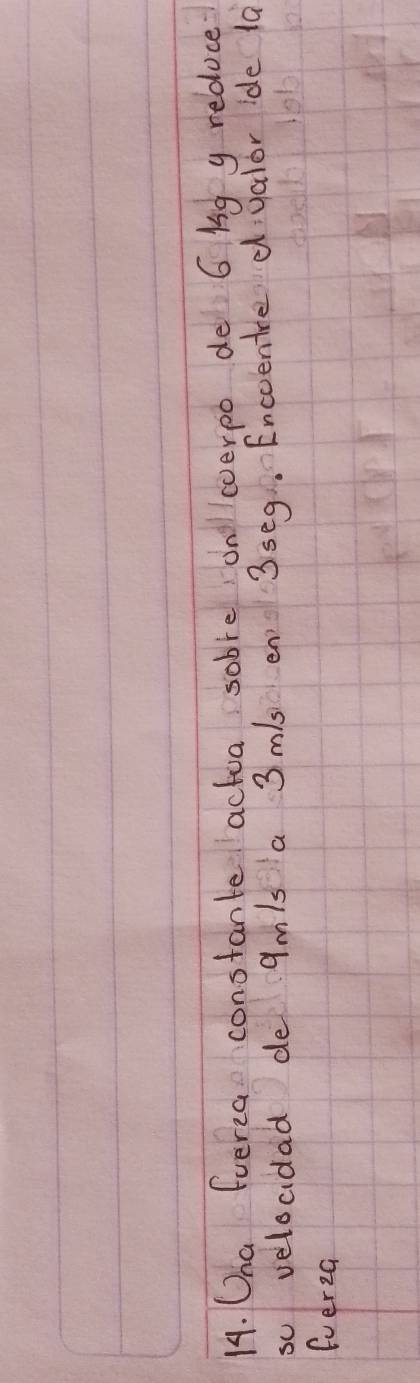 14. Una fuerza constante actua sobre un cuerpo de 6 kg y reduce
su velocidad de 9m/s a 3 m/s en 3seg. Encuentre el valor de la
fuerza